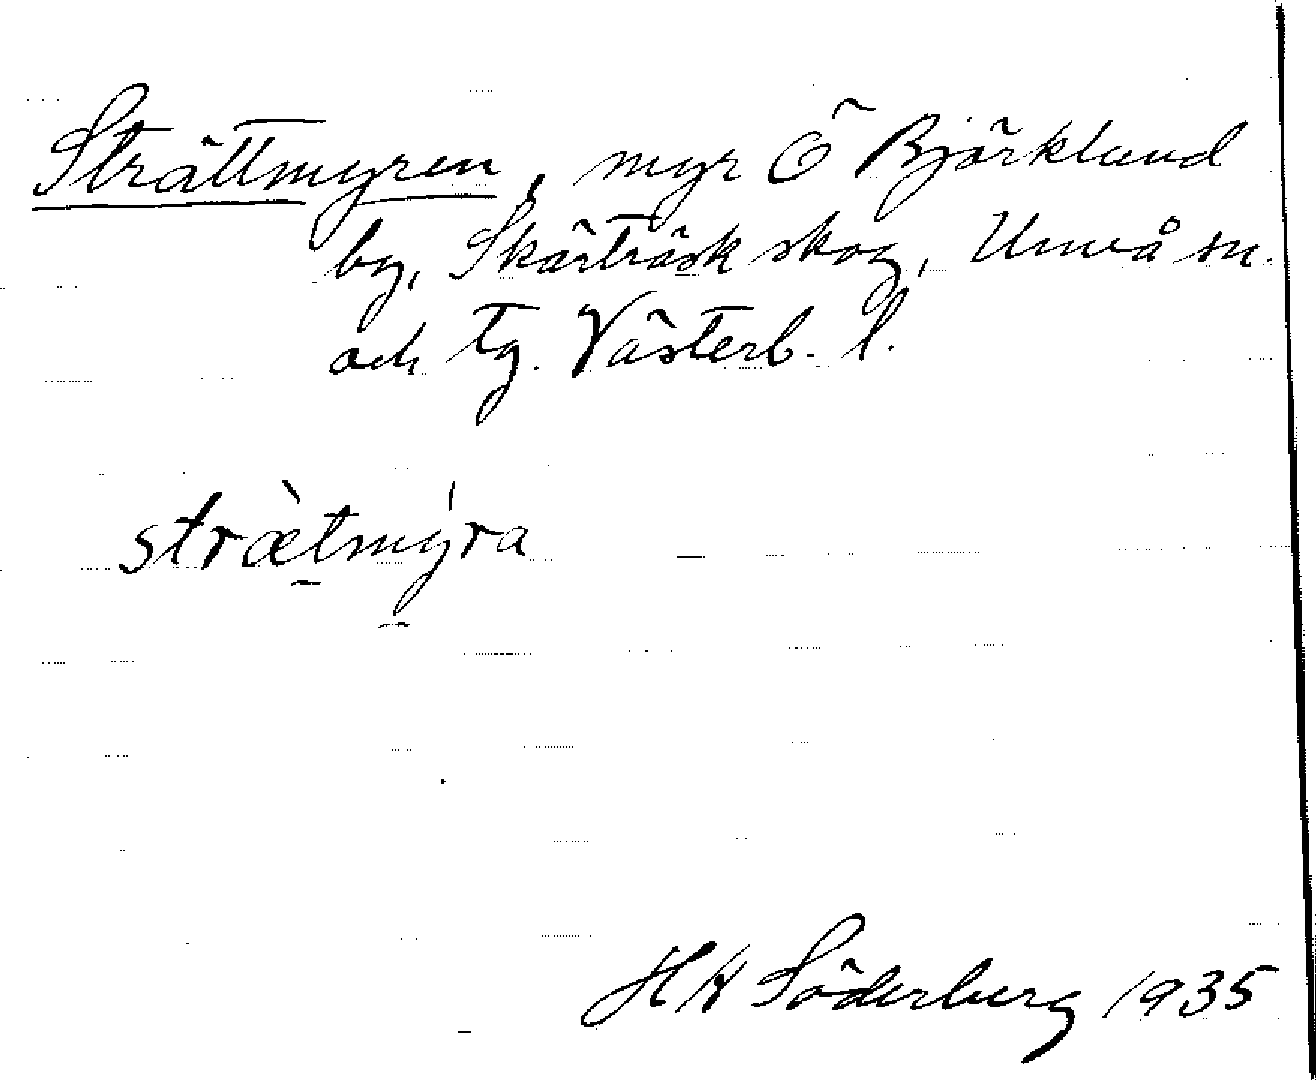 Strättmyren, myr Ö Björklund
by, Skärträsk skog, Umeå sn.
och tg. Västerb. l.
strætmyra
H H Söderberg 1935